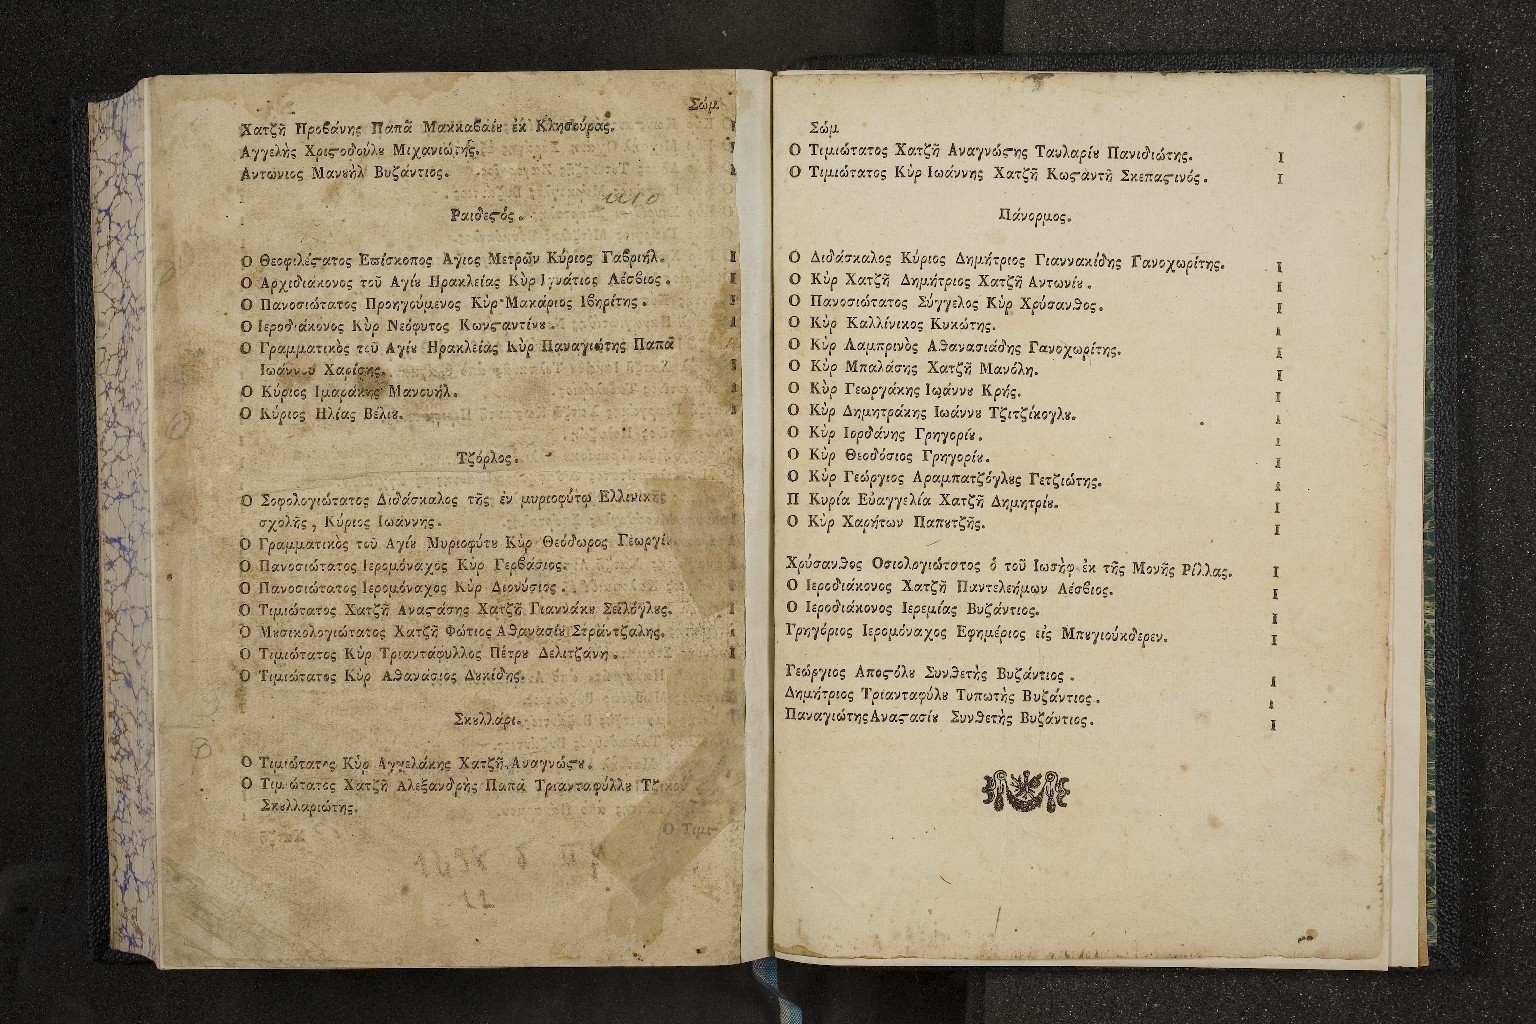 Σώμ
Χατζῆ Προβάνης Παπᾶ Μακκαβαίȣ ἐκ Κλησούρας.
Αγγελὴς Χριϛοδούλȣ Μιχανιώτης.
Αντώνιος Μανȣὴλ Βυζάντιος.
Ραιδεϛός.
Ο Θεοφιλέϛατος Επίσκοπος Αγιος Μετρῶν Κύριος Γαβριήλ. I
Ο Αρχιδιάκονος τοῦ Αγίȣ Ηρακλείας Κὺρ Ιγνάτιος Λέσβιος. I
Ο Πανοσιώτατος Προηγούμενος Κὺρ Μακάριος Ιβηρίτης. I
Ο Ιεροδιάκονος Κὺρ Νεόφυτος Κωνϛαντίνȣ. I
Ο Γραμματικὸς τοῦ Αγίȣ Ηρακλείας Κὺρ Παναγιώτης Παπᾶ
Ιωάννου Χαρίσης. I
Ο Κύριος Ιμαράκης Μανουήλ. I
Ο Κύριος Ηλίας Βέλιȣ. I
Τζόρλος.
Ο Σοφολογιώτατος Διδάσκαλος τῆς ἐν μυριοφύτῳ Ελλινικῆς
σχολῆς, Κύριος Ιωάννης.
Ο Γραμματικὸς τοῦ Αγίȣ Μυριοφύτȣ Κὺρ Θεόδωρος
Ο Πανοσιώτατος Ιερομόναχος Κὺρ Γερβάσιος.
Ο Πανοσιώτατος Ιερομόναχος Κὺρ Διονύσιος.
Ο Τιμιώτατος Χατζῆ Αναϛάσης Χατζῆ Γιαννάκȣ Σεϊλόγλȣς. I
Ο Μȣσικολογιώτατος Χατζῆ Φώτιος Αθανασίȣ Στράντζαλης. I
Ο Τιμιώτατος Κὺρ Τριαντάφυλλος Πέτρȣ Δελιτζάνη. I
Ο Τιμιώτατος Κὺρ Αθανάσιος Δȣκίδης.
Σκυλλάρι.
Ο Τιμιώτατος Κὺρ Αγγελάκης Χατζῆ Αναγνώϛȣ.
Ο Τιμιώτατος Χατζῆ Αλεξανδρὴς Παπᾶ Τριανταφύλλȣ
Σκυλλαριώτης.
Ο Τιμι-
Σώμ
Ο Τιμιώτατος Χατζῆ Αναγνώϛης Ταυλαρίȣ Πανιδιώτης. I
Ο Τιμιώτατος Κὺρ Ιωάννης Χατζῆ Κωϛαντῆ Σκεπαϛινός. I
Πάνορμος.
Ο Διδάσκαλος Κύριος Δημήτριος Γιαννακίδης Γανοχωρίτης. I
Ο Κὺρ Χατζῆ Δημήτριος Χατζῆ Αντωνίȣ. I
Ο Πανοσιώτατος Σύγγελος Κὺρ Χρύσανθος. I
Ο Κὺρ Καλλίνικος Κυκώτης. I
Ο Κὺρ Λαμπρινὸς Αθανασιάδης Γανοχωρίτης. I
Ο Κὺρ Μπαλάσης Χατζῆ Μανόλη. I
Ο Κὺρ Γεωργάκης Ιωάννȣ Κρής. I
Ο Κὺρ Δημητράκης Ιωάννȣ Τζιτζίκογλȣ. I
Ο Κὺρ Ιορδάνης Γρηγορίȣ. I
Ο Κὺρ Θεοδόσιος Γρηγορίȣ. I
Ο Κὺρ Γεώργιος Αραμπατζόγλȣς Γετζιώτης. I
Π Κυρία Εὐαγγελία Χατζῆ Δημητρίȣ. I
Ο Κὺρ Χαρήτων Παπȣτζῆς. I
Χρύσανθος Οσιολογιώτατος ὁ τοῦ Ιωσὴφ ἐκ τῆς Μονῆς Ρίλλας. I
Ο Ιεροδιάκονος Χατζῆ Παντελεήμων Λέσβιος. I
Ο Ιεροδιάκονος Ιερεμίας Βυζάντιος. I
Γρηγόριος Ιερομόναχος Εφημέριος εἰς Μπȣγιούκδερεν. I
Γεώργιος Αποϛόλȣ Συνθετὴς Βυζάντιος. I
Δημήτριος Τριανταφύλȣ Τυπωτὴς Βυζάντιος. I
Παναγιώτης Αναϛασίȣ Συνθετὴς Βυζάντιος. I